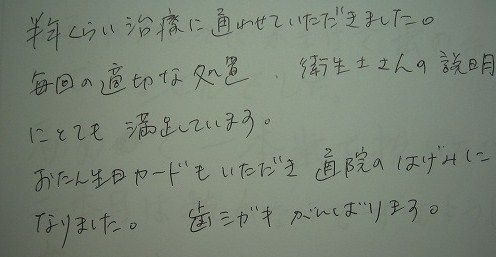 半年くらい治療に通わせていただきました。
毎回の適切な処置、衛生士さんの説明
にとても満足しています。
おたん生日カードもいただき通院のはげみに
なりました。 歯ミガキがんばります。